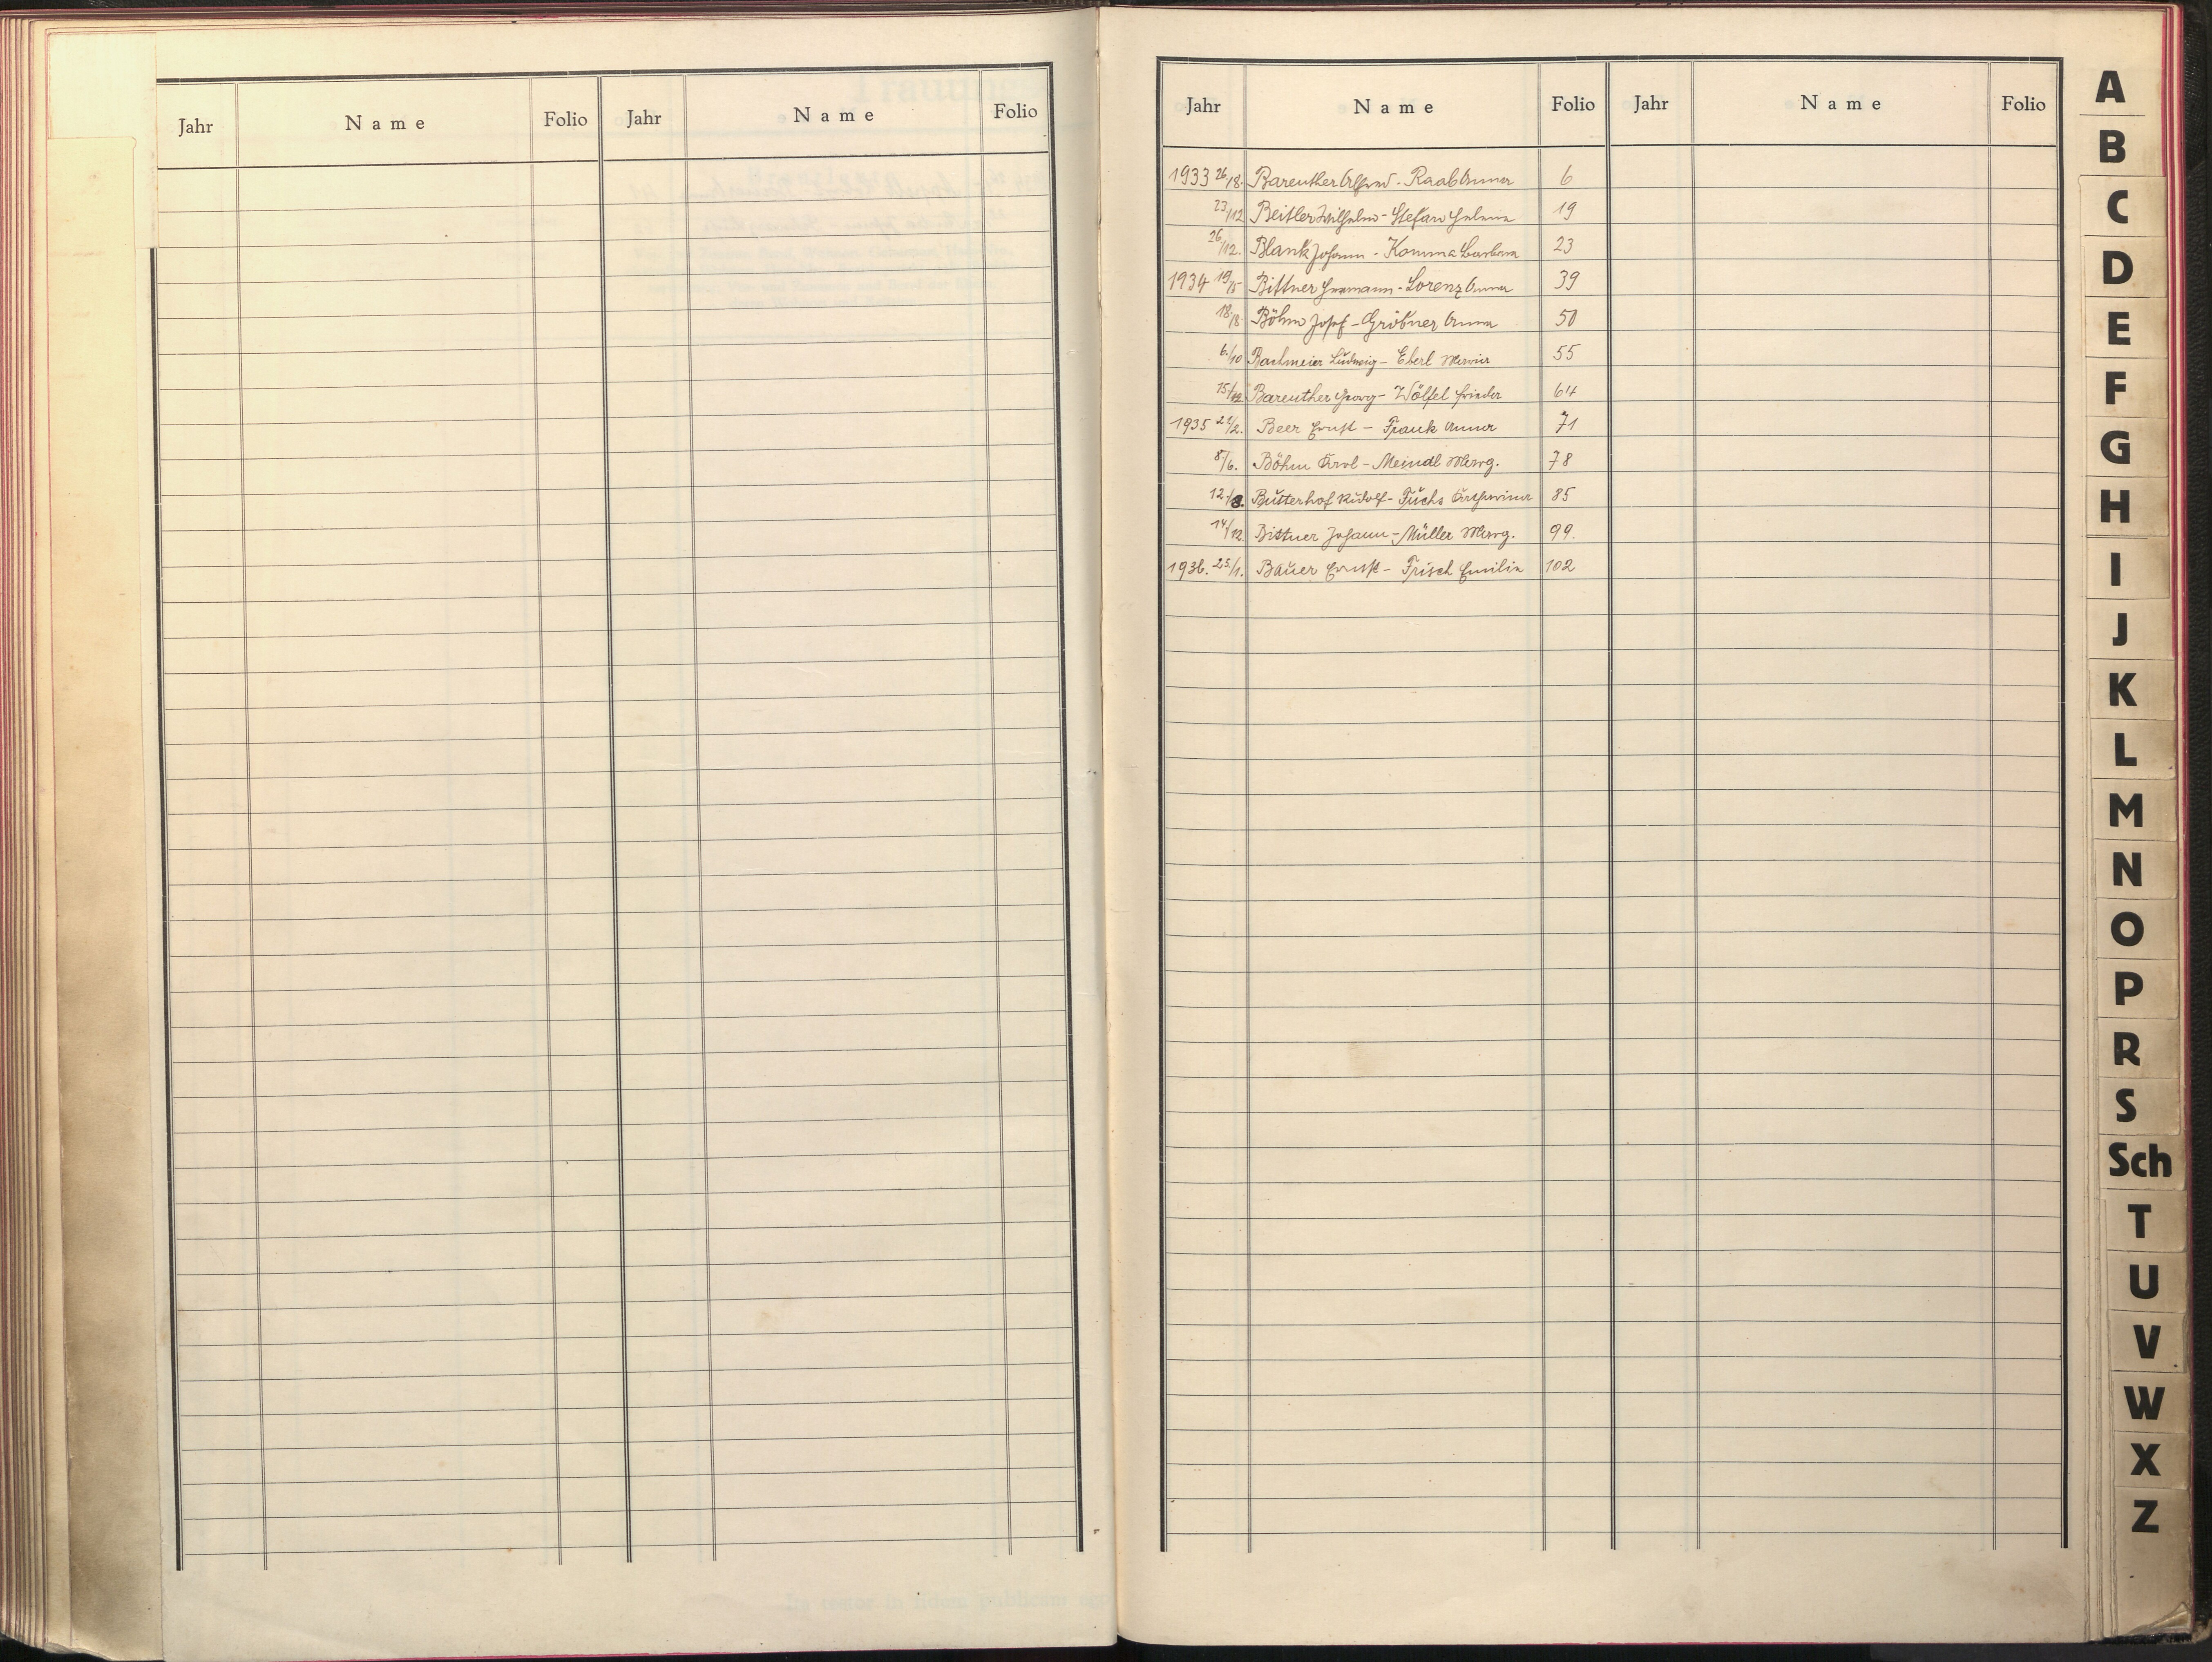 Jahr Name Folio Jahr Name Folio
Jahr Name Folio Jahr Name Folio
1933 26/8. Bareuther Alfred - Raab Anna 6
23/12 Beitler Wilhelm - Stefan Helene 19
26/12. Blank Johann - Komma Barbara 23
1934 19/5 Bittner Hermann - Lorenz Anna 39
18/8. Böhm Josef - Gröbner Anna 50
6./10 Bachmeier Ludwig - Eberl Maria 55
15/12. Bareuther Georg - Wölfel Frieda 64
1935 21/2. Beer Ernst - Frank Anna 71
8/6. Böhm Karl - Meindl Marg. 78
12./8. Butterhof Rudolf - Fuchs Katharina 85
14/12. Bittner Johann - Müller Marg. 99.
1936. 25/1. Bauer Ernst - Frisch Emilie 102
A
B
C
D
E
F
G
H
I
J
K
L
M
N
O
P
R
S
Sch
T
U
V
W
X
Z